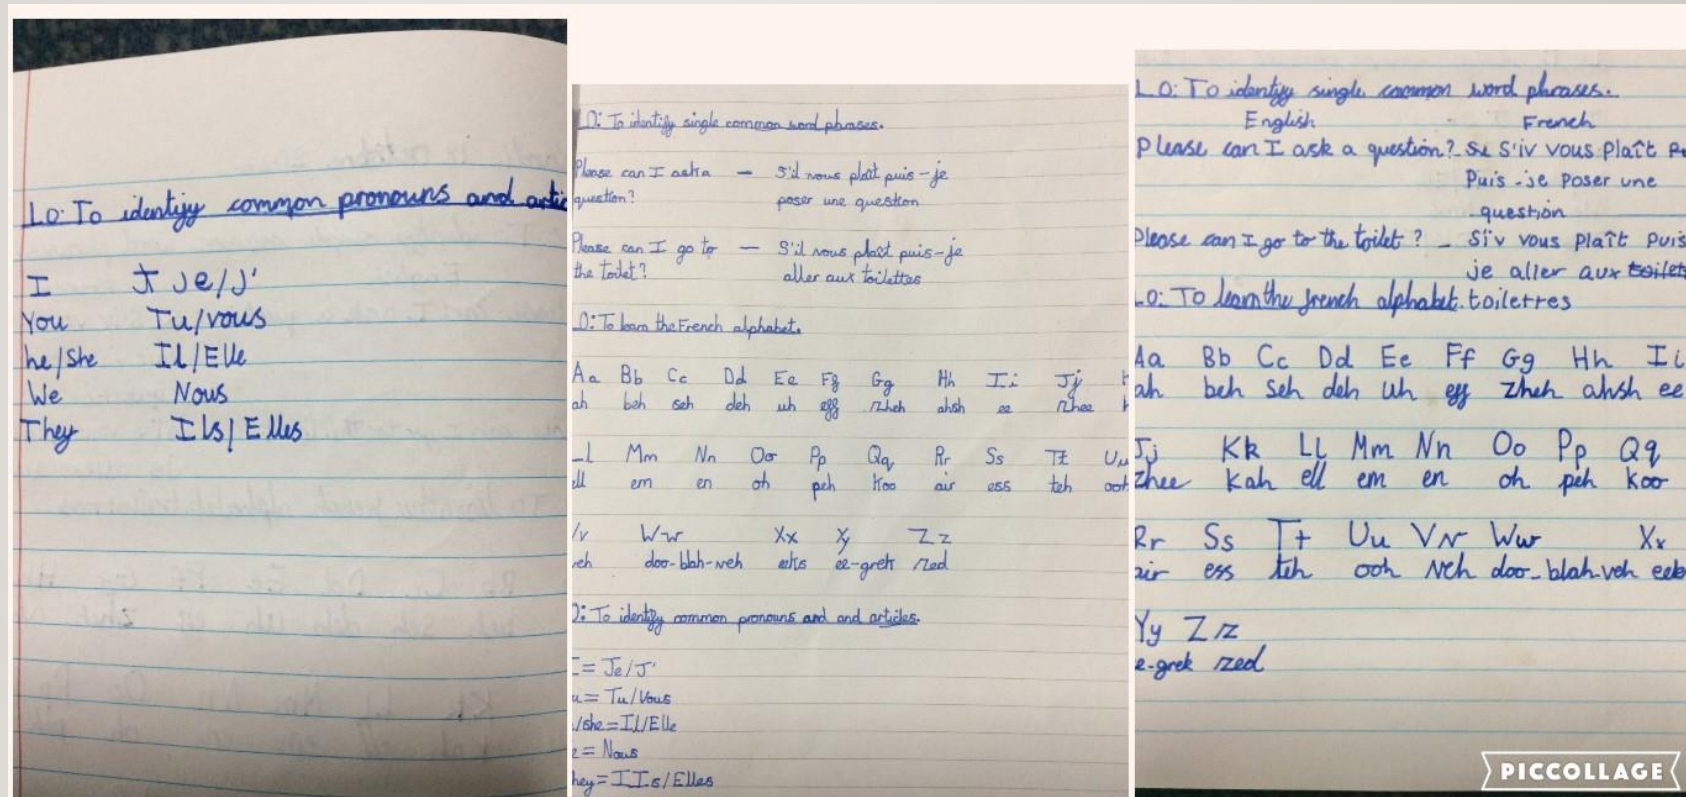 LO: To identify common pronouns and artic
I Je/J'
You Tu/vous
he/she Il/Elle
We Nous
They Ils/Elles
LO: To identify single common word phrases.
Please can I aska — S'il vous plaît puis-je
question? poser une question
Please can I go to — S'il vous plaît puis-je
the toilet? aller aux toilettes
O: To learn the French alphabet.
Aa Bb Cc Dd Ee Ff Gg Hh Ii Jj
ah beh seh deh uh eff zheh ahsh ee zhee
Mm Nn Oo Pp Qq Rr Ss Tt Uu
ell em en oh peh koo air ess teh ooh
Vv Ww Xx Yy Zz
veh doo-blah-veh eeks ee-grek zed
O: To identify common pronouns and and articles.
I = Je/J'
u = Tu/Vous
/she = Il/Elle
e = Nous
hey = IIs/Elles
LO: To identify single common word phrases.
English French
Please can I ask a question? - S'iv vous Plaît
Puis-je Poser une
question
Please can I go to the toilet? - S'iv vous Plaît Puis
je aller aux toilet
LO: To learn the french alphabet. toilettes
Aa Bb Cc Dd Ee Ff Gg Hh Ii
ah beh seh deh uh eff zheh ahsh ee
Jj Kk Ll Mm Nn Oo Pp Qq
zhee kah ell em en oh peh koo
Rr Ss Tt Uu Vv Ww Xx
air ess teh ooh veh doo-blah-veh eek
Yy Zz
e-grek zed
PICCOLLAGE